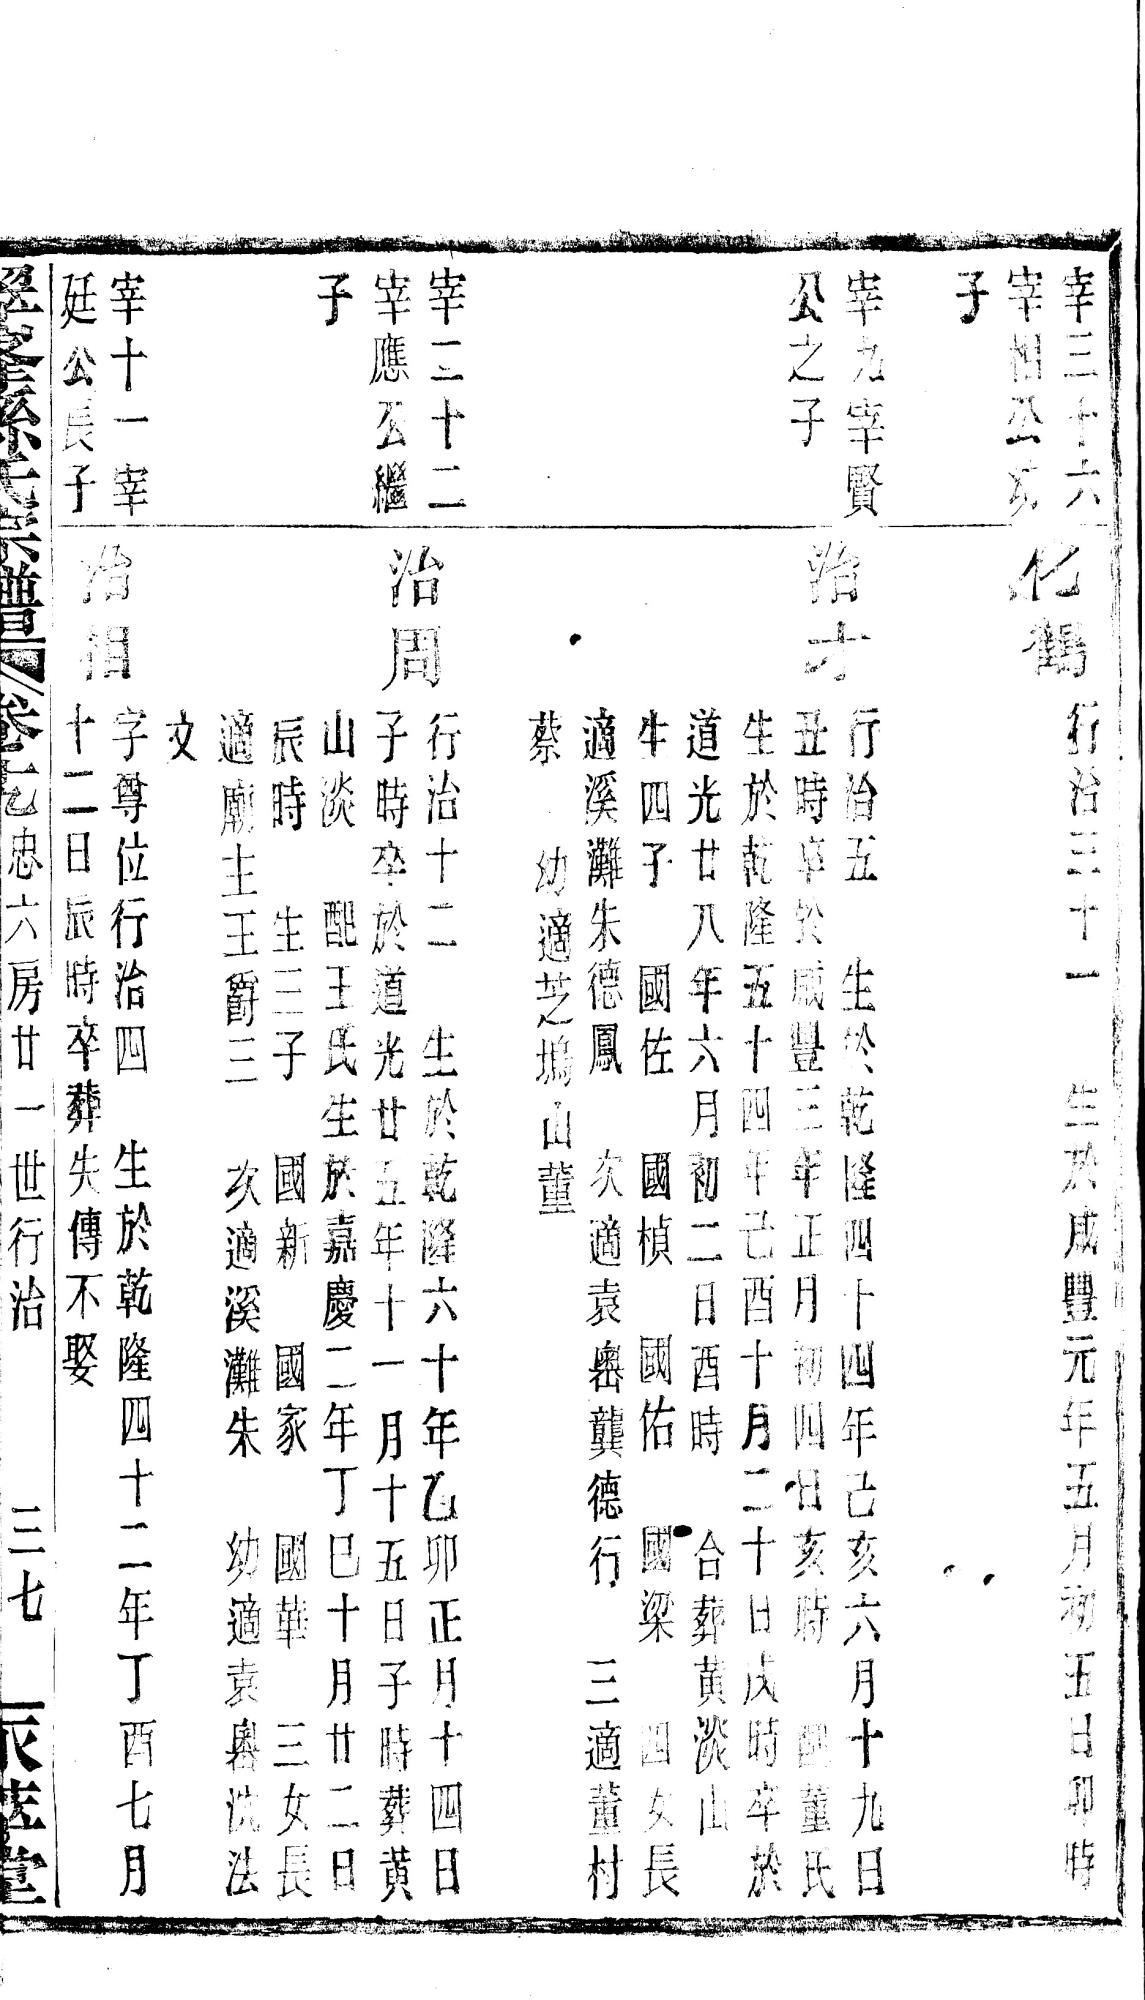 宰三十六
宰相公幼
子
化鶴
行治三十一　生於咸豐元年五月初五日卯時
宰九宰賢
公之子
治才
行治五　生於乾隆四十四年己亥六月十九日
丑時卒於咸豐三年正月初四日亥時　配董氏
生於乾隆五十四年己酉十月二十日戌時卒於
道光廿八年六月初二日酉時　合葬黃淡山
生四子　國佐　國楨　國佑　國梁　四女長
適溪灘朱德鳳　次適袁㟁龔德行　三適董村
蔡　幼適芝塢山董
宰二十二
宰應公繼
子
治周
行治十二　生於乾隆六十年乙卯正月十四日
子時卒於道光廿五年十一月十五日子時葬黃
山淡　配王氏生於嘉慶二年丁巳十月廿二日
辰時　生三子　國新　國家　國華　三女長
適廟主王爵三　次適溪灘朱　幼適袁㟁沈法
文
宰十一宰
廷公長子
治相
字尊位行治四　生於乾隆四十二年丁酉七月
十二日辰時卒葬失傳不娶
氏宗譜　卷七　忠六房廿一世行治　三七　堂